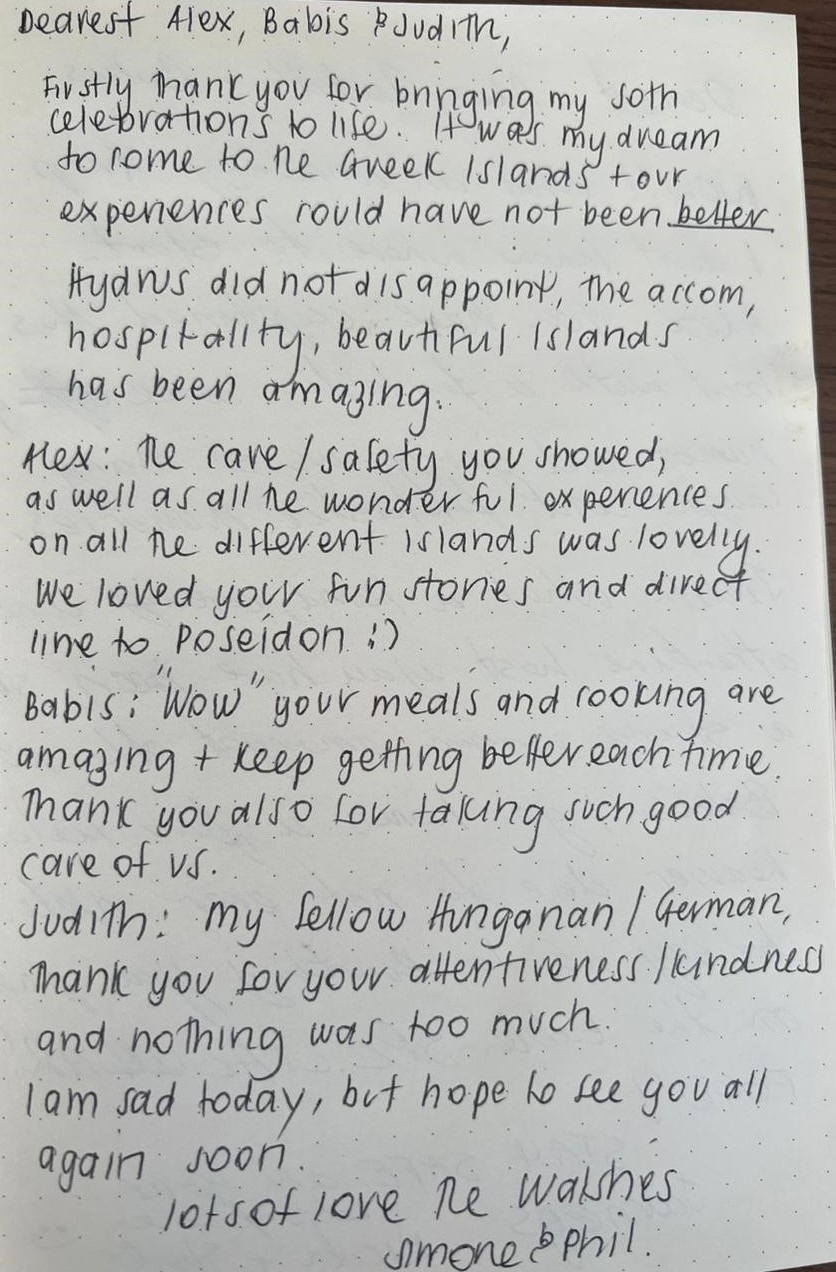 Dearest Alex, Babis & Judith,
Firstly thank you for bringing my 50th
celebrations to life. It was my dream
to come to the Greek Islands + our
experiences could have not been better.
Hydrus did not disappoint, the accom,
hospitality, beautiful Islands
has been amazing.
Alex: The care / safety you showed,
as well as all the wonderful experiences
on all the different islands was lovely.
We loved your fun stories and direct
line to Poseidon :)
Babis: "Wow" your meals and cooking are
amazing + keep getting better each time.
Thank you also for taking such good
care of us.
Judith: My fellow Hungarian / German,
Thank you for your attentiveness / kindness
and nothing was too much.
I am sad today, but hope to see you all
again soon.
lots of love The Walshes
Simone & Phil.